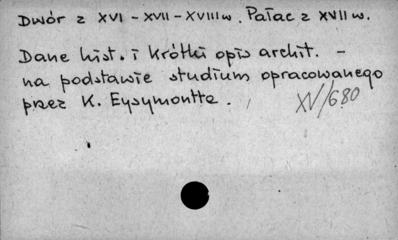 Dwór z XVI - XVII - XVIII w. Pałac z XVII w.
Dane hist. i krótki opis archit. -
na podstawie studium opracowanego
przez K. Eysymontta.
XV/680